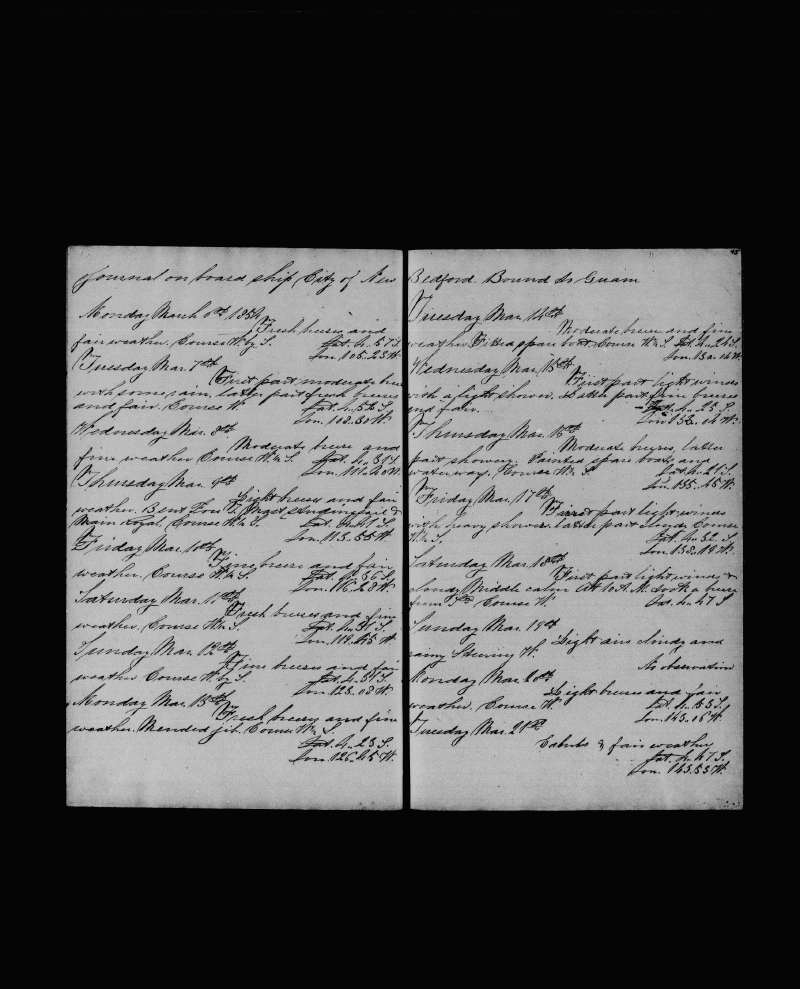 Journal on board ship City of New
Monday March 6th 1854
Fresh breeses and
fair weather. Course W. by S. Lat. 4..57 S.
Lon. 105..23 W.
Tuesday Mar. 7th
First part moderate bree
with some rain, latter part fresh breeses
and fair. Course W. Lat. 4..52 S.
Lon. 108..30 W.
Wednesday Mar. 8th
Moderate breese and
fine weather Course W. & S. Lat. 4..51 S.
Lon. 111..20 W.
Thursday Mar. 9th
Light breeses and fair
weather. Bent Fore T. Mast Studingsail &
Main Royal, Course W. & S. Lat. 4..41 S.
Lon. 113..55 W.
Friday Mar. 10th
Fine breese and fair
weather. Course W. & S. Lat. 4..36 S.
Lon. 116..28 W.
Saturday Mar. 11th
Fresh breeses and fine
weather. Course W. & S. Lat. 4..31 S.
Lon. 119..45 W.
Sunday Mar. 12th
Fine breeses and fair
weather Course W. by S. Lat. 4..31 S.
Lon. 123..08 W.
Monday Mar. 13th
Fresh breesy and fine
weather. Mended jib. Course W. & S.
Lat. 4..23 S.
Lon. 126..45 W.
Bedford. Bound to Guam
Tuesday Mar. 14th
Moderate breese and fine
weather. Fitted spare boat. Course W. & S. Lat. 4..24 S.
Lon. 130..16 W.
Wednesday Mar. 15th
First part light winds
with a light shower. Latter part fine breeses
and fair. Lat. 4..25 S.
Lon 132..04 W.
Thursday Mar. 16th
Moderate breeses, latter
part showery. Painted spare boat, and
waterways. Course W. & S. Lat. 4..21 S.
Lon. 135..45 W.
Friday Mar. 17th
First part light winds
with heavy shower. latter part cloudy Course
W. & S. Lat. 4..32 S.
Lon. 138..19 W.
Saturday Mar. 18th
First part light winds &
cloudy Middle calm At 10 A.M. took a breese
from Course W. Lat. 4..47 S.
Sunday Mar. 19th
Light airs cloudy and
rainy Steering W.
No observation
Monday Mar. 20th
Light breeses and fair
weather. Course W. Lat. 4..53 S.
Lon. 143..06 W.
Tuesday Mar. 21st
Calms & fair weather
Lat. 4..47 S.
Lon. 143..53 W.